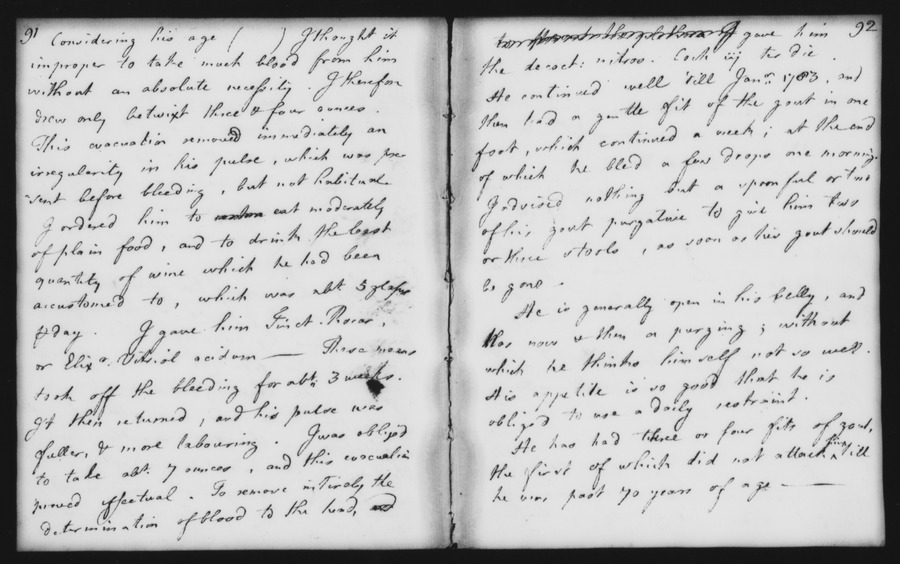 91
Considering his age (     ) I thought it
improper to take much blood from him
without an absolute necessity. I therefore
drew only betwixt three & four ounces.
This evacuation removed immediately an
irregularity in his pulse, which was pre
sent before bleeding, but not habitual.
I ordered him to eat moderately
of plain food, and to drink the least
quantity of wine which he had been
accustomed to, which was abt 3 glasses
℔ day. I gave him Tinct. Rosar,
or Elixr. Vitriol acidum — These means
took off the bleeding for abt. 3 weeks.
It then returned, and his pulse was
fuller, & more labouring. I was obliged
to take abt. 7 ounces, and this evacuation
proved effectual. To remove intirely the
determination of blood to the head,
92
I gave him
the decoct: nitros. Coch iij ter die.
He continued well 'till Jany. 1783, and
then had a gentle fit of the gout in one
foot, which continued a week; at the end
of which he bled a few drops one morning.
I advised nothing but a spoonful or two
of his gout purgative to give him two
or three stools, as soon as his gout should
be gone.
He is generally open in his belly, and
Has now & then a purging; without
which he thinks himself not so well.
His appetite is so good that he is
obliged to use a daily restraint.
He has had three or four fits of gout,
the first of which did not attack him 'till
he was past 70 years of age —